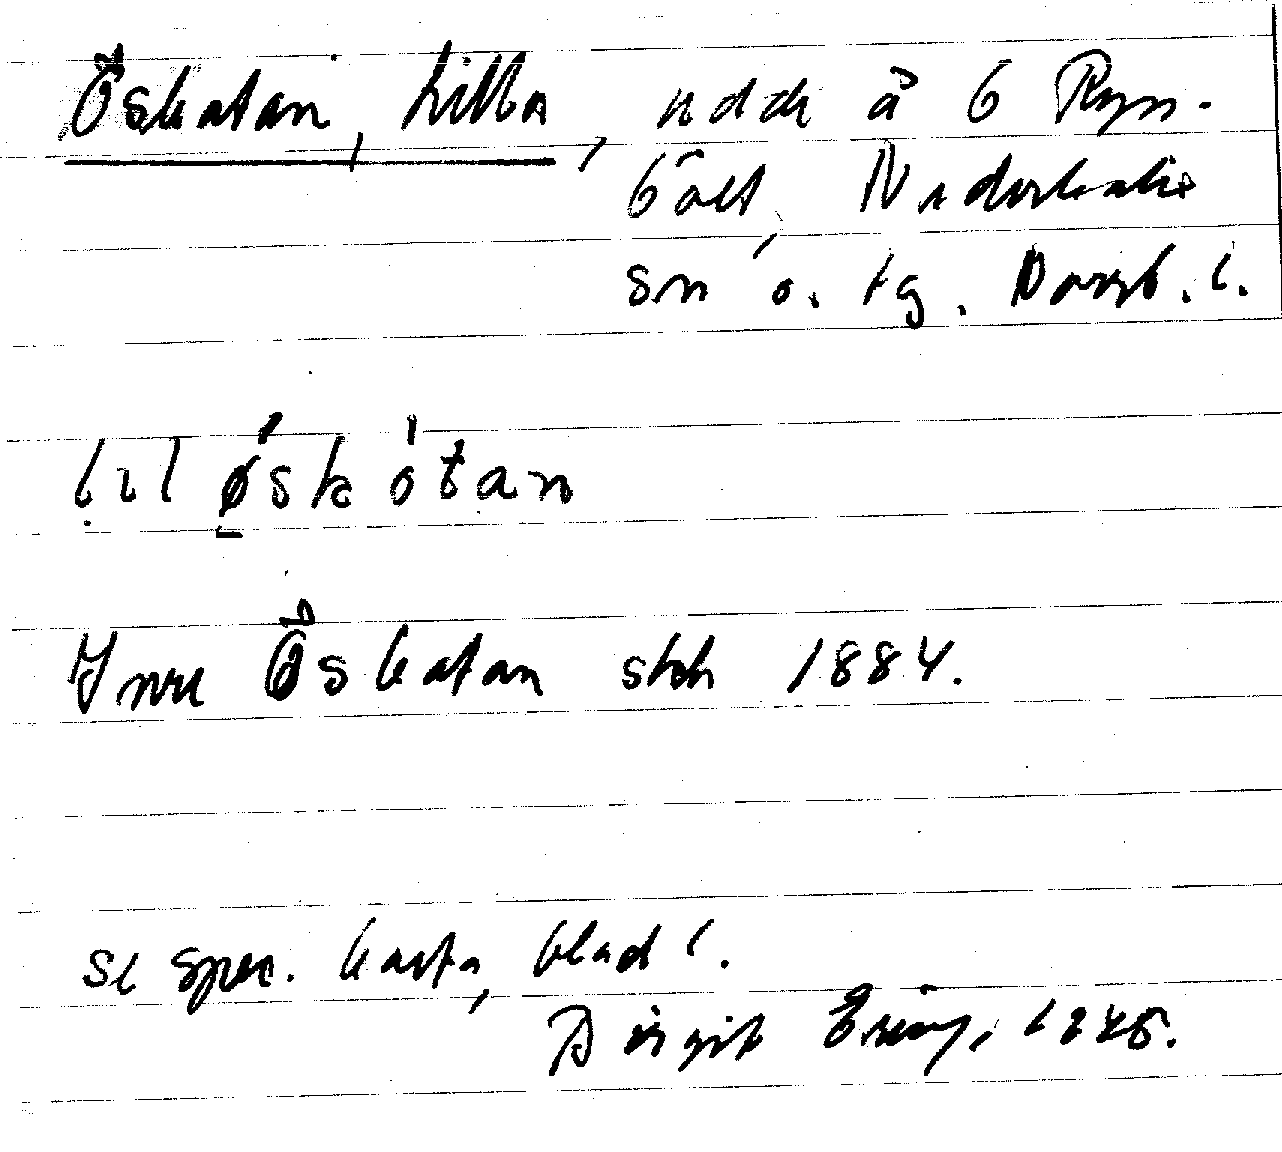 Öskatan, Lilla, udde å 6 Ryn-
bält, Nederkalix
sn o. tg. Norrb. l.
lil øskòtan
Inre Öskatan skk 1884.
se spec. karta, blad 1.
Birgit Ering, 1945.